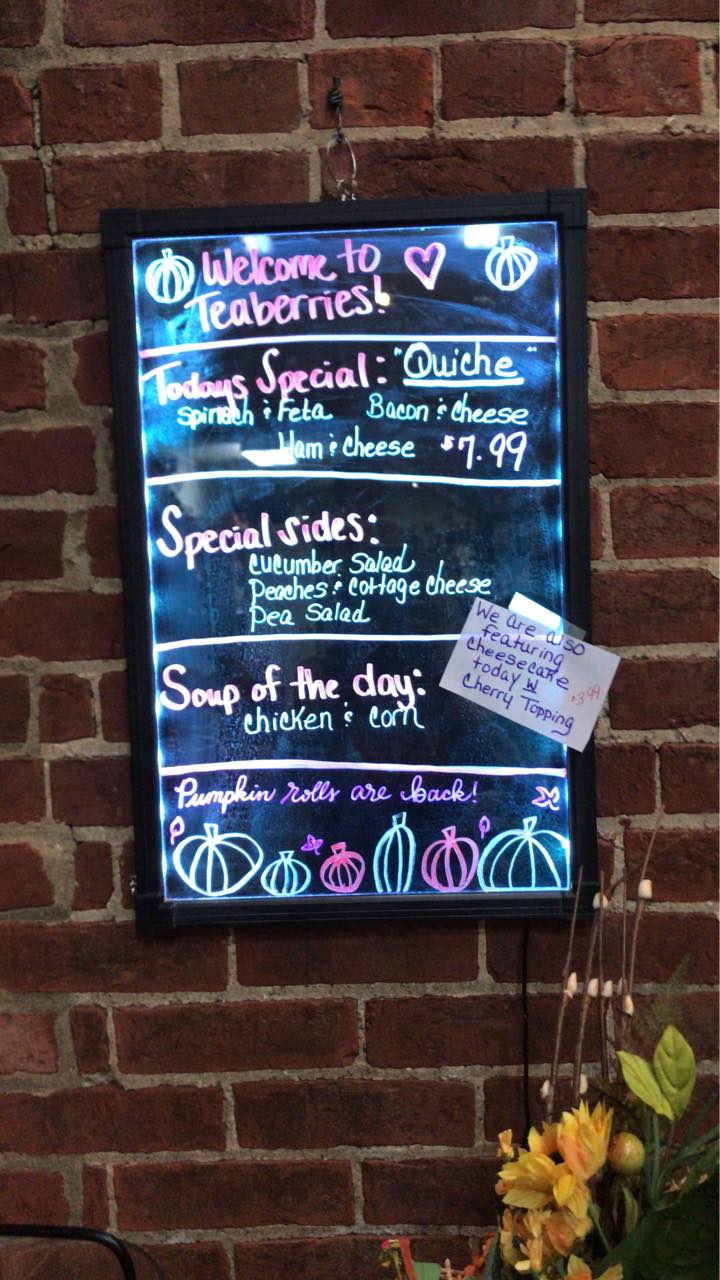 Welcome to
Teaberries!
Todays Special: "Quiche"
Spinach & Feta Bacon & Cheese
Ham & Cheese $7.99
Special sides:
Cucumber Salad
Peaches & Cottage Cheese
Pea Salad
Soup of the day:
Chicken & Corn
Pumpkin rolls are back!
We are also
featuring
cheesecake
today W
Cherry Topping
$3.99